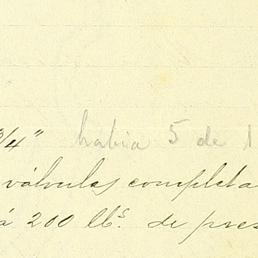 3/4" habia 5 de 1
válvulas completa
á 200 lbs. de pres